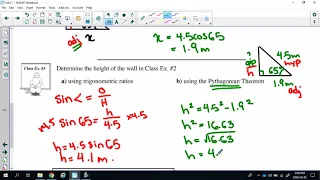 x = 4.5cos65
adj
x
= 1.9m
?
h
65°
4.5m
hyp
1.9m
adj
Class Ex. #3
Determine the height of the wall in Class Ex. #2
a) using trigonometric ratios
b) using the Pythagorean Theorem
sin< = O/H
h² = 4.5² - 1.9²
x4.5 sin 65 = h/4.5 x4.5
h² = 16.63
h = 4.5 sin 65
h = √16.63
h = 4.1 m.
h = 4.